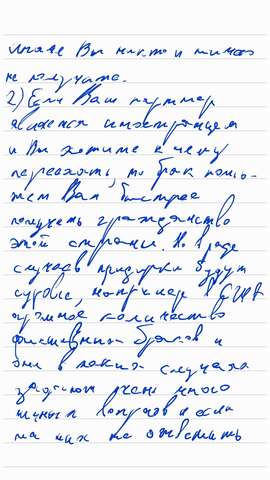 иначе Вы никто и ничего
не получите.
2) Если Ваш партнер
является иностранцем
и Вы хотите к нему
переехать, то брак помо-
жет Вам быстрее
получить гражданство
этой страны. Но в ряде
случаев придирки будут
суровые, например в США
огромное количество
фиктивных браков и
они в таких случаях
задают очень много
личных вопросов и если
на них не ответить